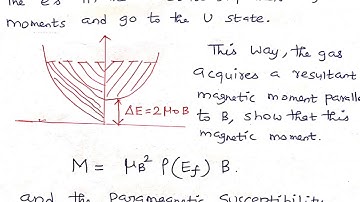 moments and go to the U state.
This way, the gas
acquires a resultant
magnetic moment parallel
ΔE=2μ0B
to B, show that this
magnetic moment.
M = μB² ρ(Ef) B.
and the Paramagnetic Susceptibility